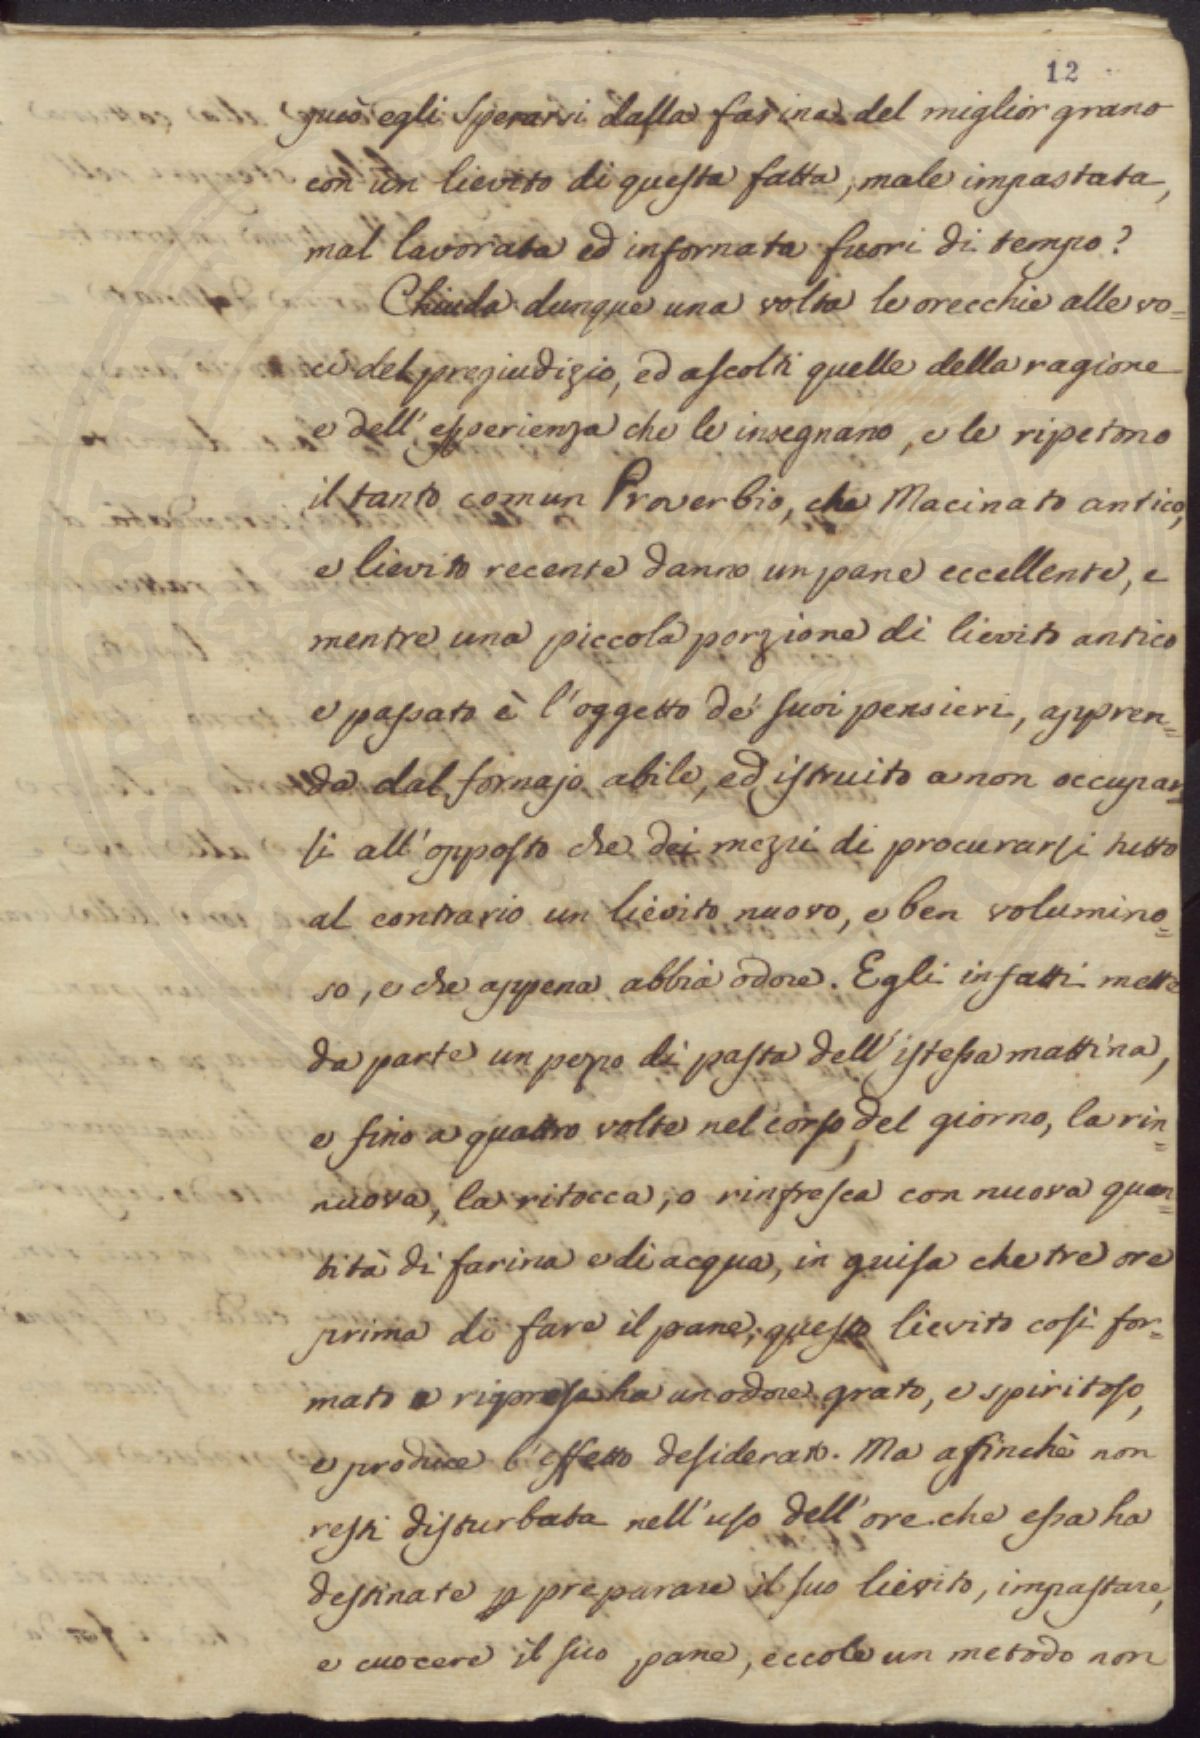 12
può egli sperarsi dalla farina del miglior grano
con un lievito di questa fatta, male impastata,
mal lavorata ed infornata fuori di tempo?
Chiuda dunque una volta le orecchie alle vo=
ci del pregiudizio, ed ascolti quelle della ragione
e dell'esperienza che le insegnano, e le ripetono
il tanto comun Proverbio, che Macinato antico,
e lievito recente danno un pane eccellente, e
mentre una piccola porzione di lievito antico
e passato è l'oggetto de' suoi pensieri, appren=
da dal fornajo abile, ed istruito a non occupar=
si all'opposto che dei mezzi di procurarsi tutto
al contrario un lievito nuovo, e ben volumino=
so, e che appena abbia odore. Egli infatti mette
da parte un pezzo di pasta dell'istessa mattina,
e fino a quattro volte nel corso del giorno, la rin=
nuova, la ritocca, o rinfresca con nuova quan=
tità di farina e di acqua, in guisa che tre ore
prima di fare il pane, questo lievito così for=
mato e ripreso ha un odore grato, e spiritoso,
e produce l'effetto desiderato. Ma affinchè non
resti disturbata nell'uso dell'ore che essa ha
destinate p preparare il suo lievito, impastare,
e cuocere il suo pane, eccole un metodo non